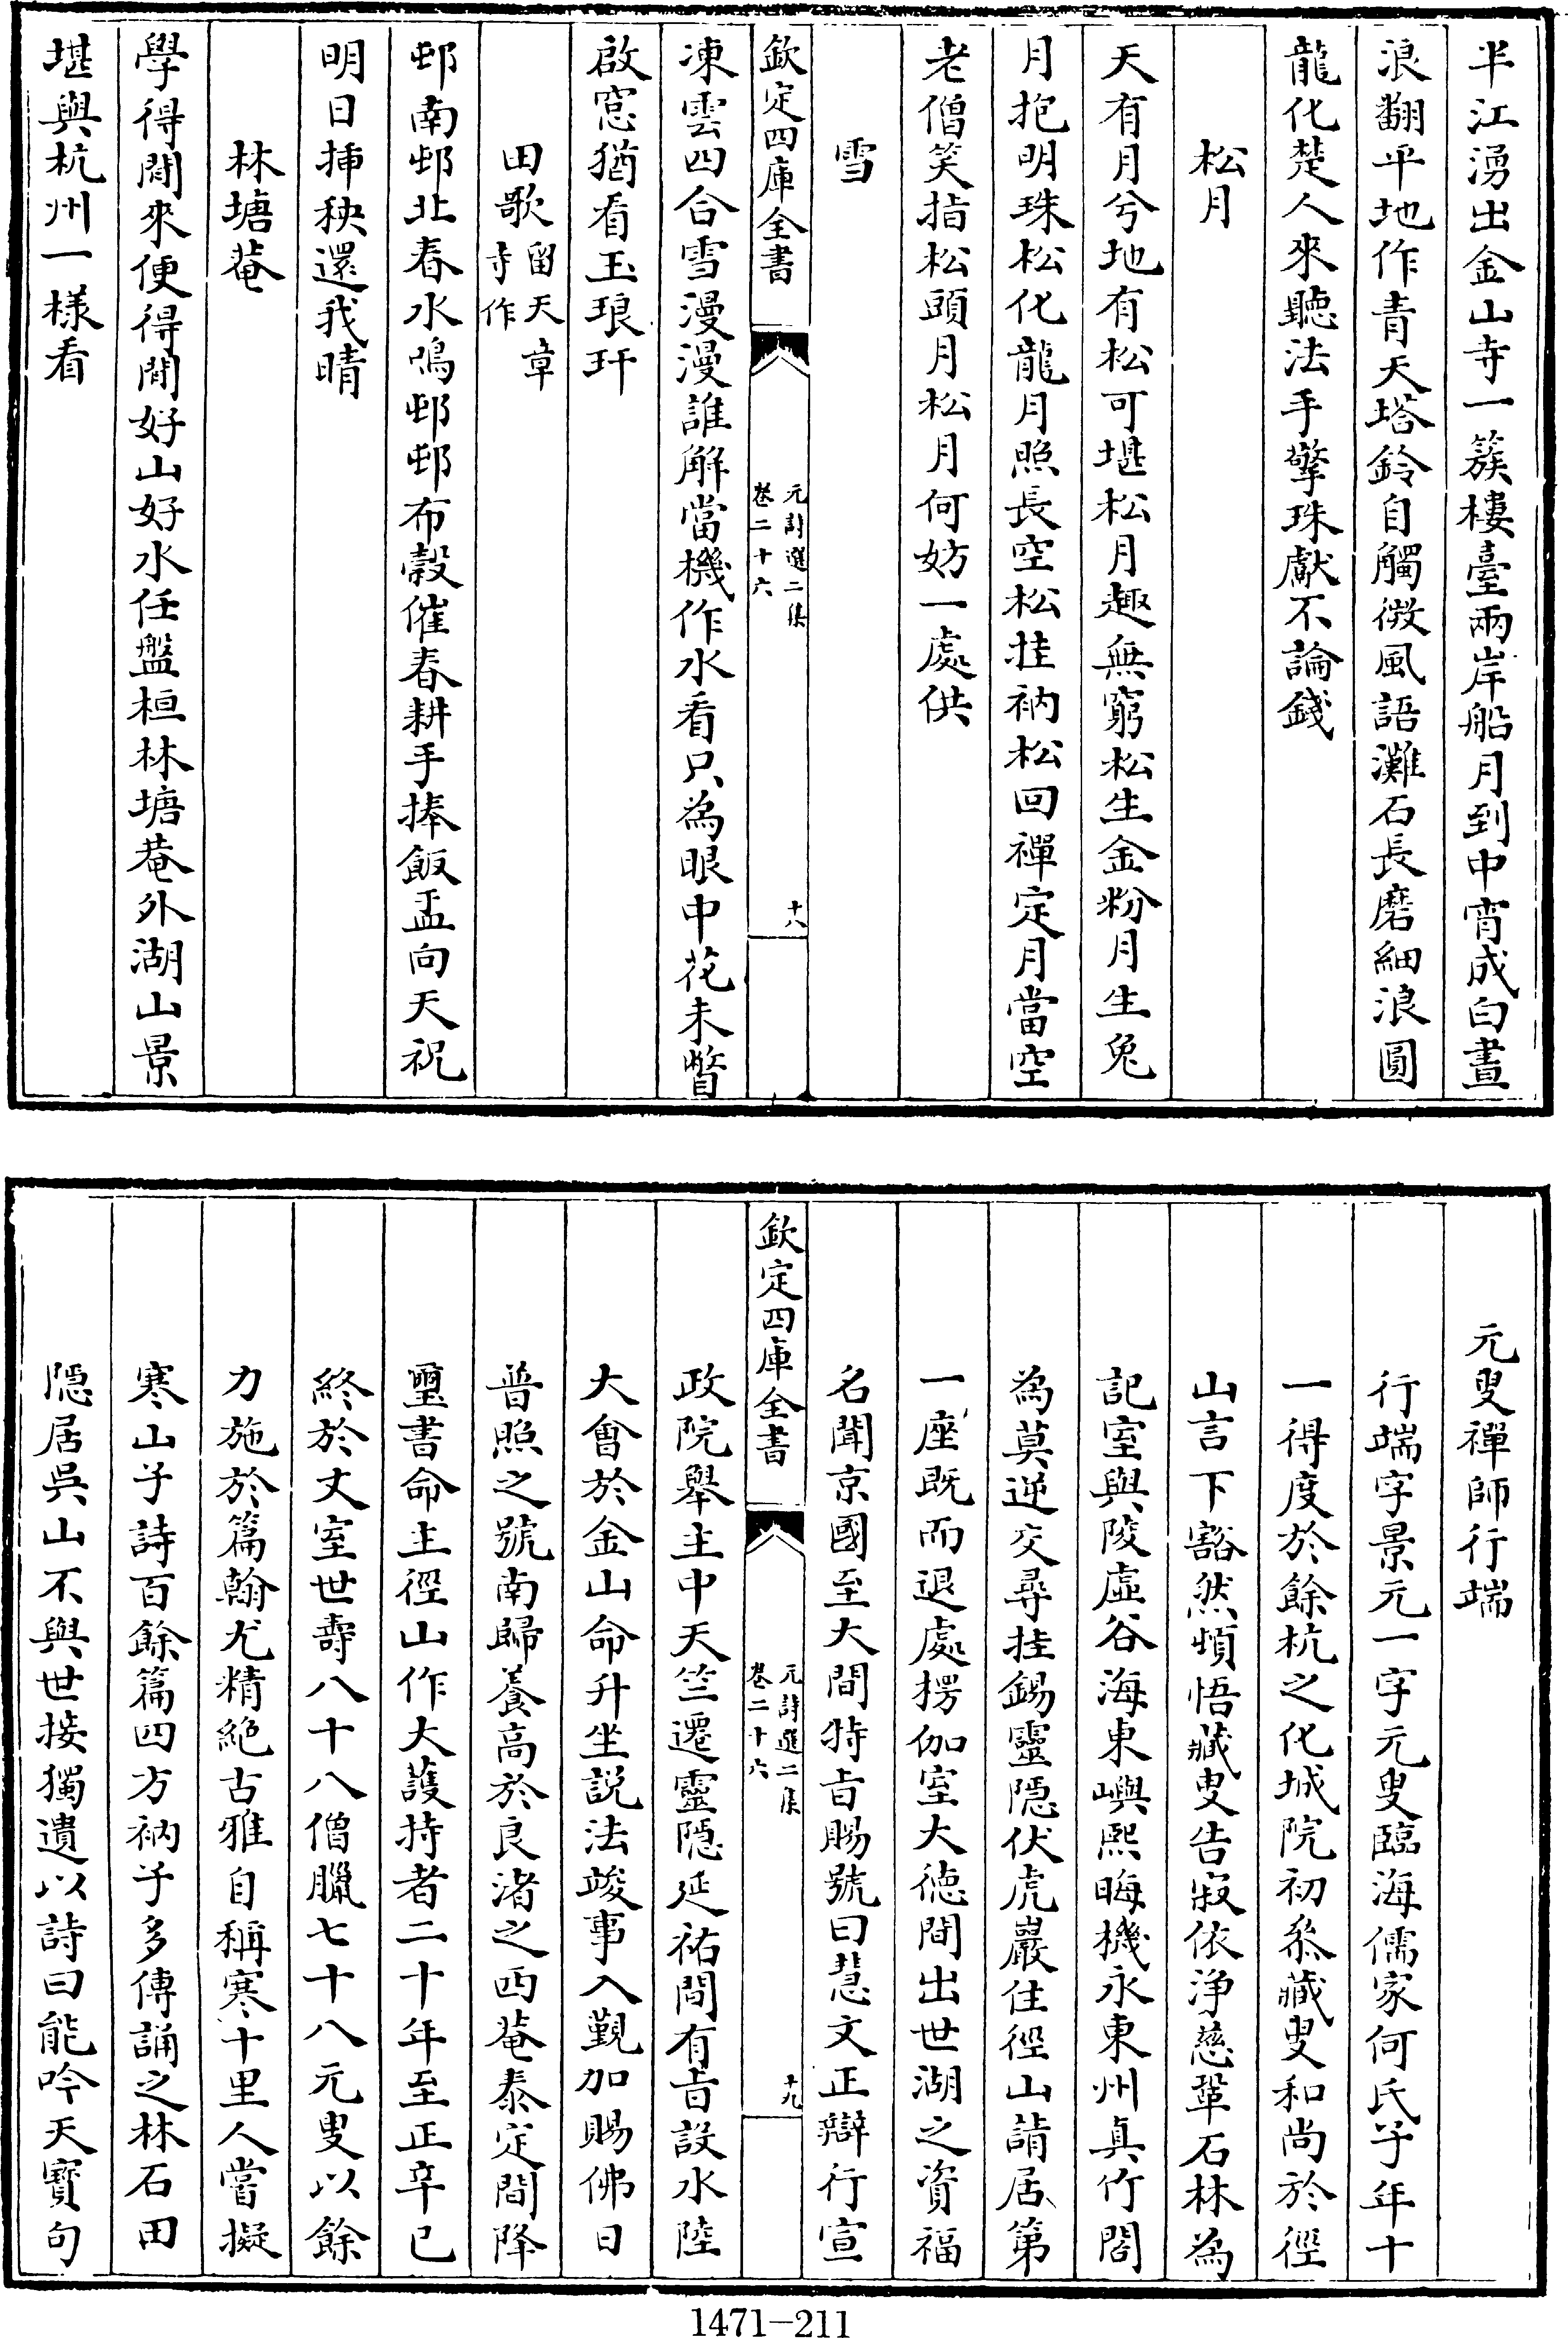 半江湧出金山寺一簇樓臺兩岸船月到中宵成白晝
浪翻平地作青天塔鈴自觸微風語灘石長磨細浪圓
龍化楚人來聽法手擎珠獻不論錢
松月
天有月兮地有松可堪松月趣無窮松生金粉月生兔
月抱明珠松化龍月照長空松挂衲松回禪定月當空
老僧笑指松頭月松月何妨一處供
雪
欽定四庫全書
元詩選二集
卷二十六
十八
凍雲四合雪漫漫誰解當機作水看只為眼中花未瞥
啟窓猶看玉琅玕
田歌留天章
寺作
邨南邨北春水鳴邨邨布穀催春耕手捧飯盂向天祝
明日揷秧還我晴
林塘菴
學得閒來便得閒好山好水任盤桓林塘菴外湖山景
堪與杭州一樣看
元叟禪師行端
行端字景元一字元叟臨海儒家何氏子年十
一得度於餘杭之化城院初叅藏叟和尚於徑
山言下豁然頓悟藏叟告寂依淨慈鞏石林為
記室與陵虛谷海東嶼熙晦機永東州真竹閣
為莫逆交尋挂錫靈隱伏虎巖住徑山請居第
一座既而退處楞伽室大德間出世湖之資福
名聞京國至大間特㫖賜號曰慧文正辯行宣
欽定四庫全書
元詩選二集
卷二十六
十九
政院舉主中天竺遷靈隱延祐間有㫖設水陸
大會於金山命升坐説法竣事入覲加賜佛日
普照之號南歸養高於良渚之西菴泰定間降
璽書命主徑山作大護持者二十年至正辛巳
終於丈室世壽八十八僧臘七十八元叟以餘
力施於篇翰尤精絶古雅自稱寒十里人嘗擬
寒山子詩百餘篇四方衲子多傳誦之林石田
隱居吳山不與世接獨遺以詩曰能吟天寶句
1471-211